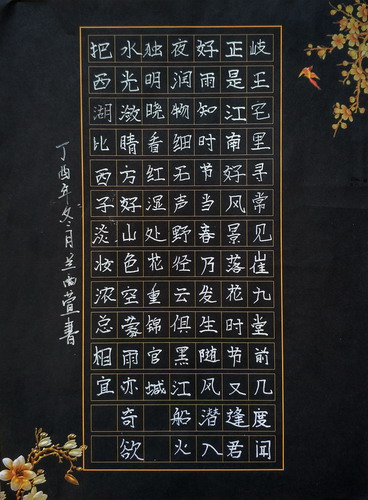 岐王宅里寻常见崔九堂前几度闻
正是江南好风景落花时节又逢君
好雨知时节当春乃发生随风潜入
夜润物细无声野径云俱黑江船火
独明晓看红湿处花重锦官城
水光潋晴方好山色空蒙雨亦奇欲
把西湖比西子淡妆浓总相宜
丁酉年冬月兰萱书